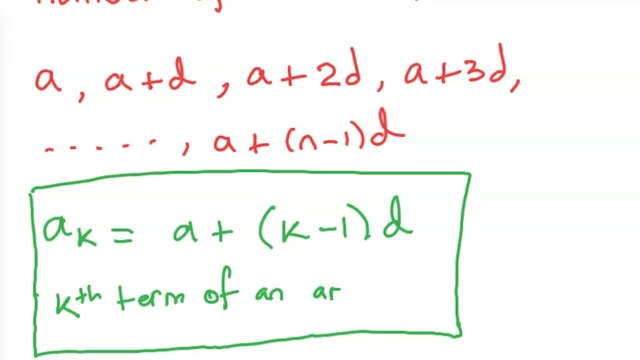 a, a+d, a+2d, a+3d,
....., a+(n-1)d
a_k = a+(k-1)d
k^th term of an ar